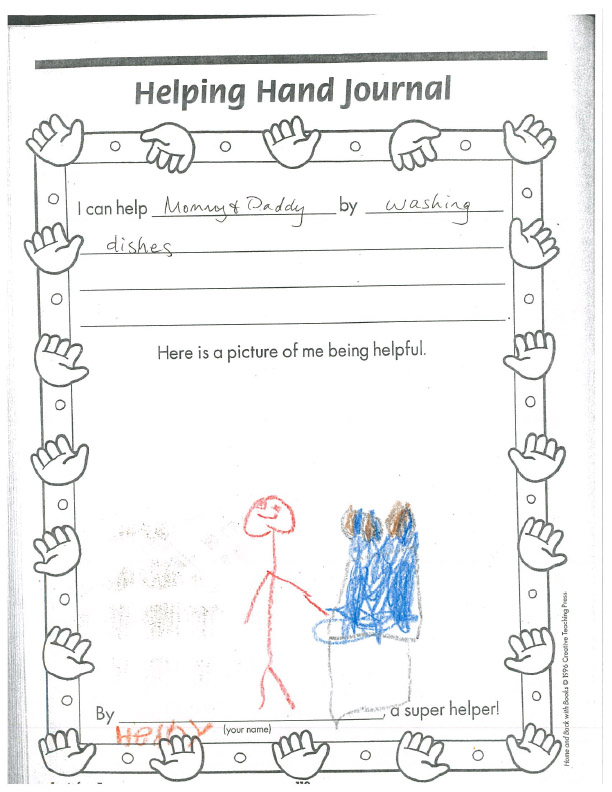 Helping Hand Journal
I can help Mommy & Daddy by washing
dishes
Here is a picture of me being helpful.
By Henry, a super helper!
(your name)
Home and Back with Books © 1996 Creative Teaching Press